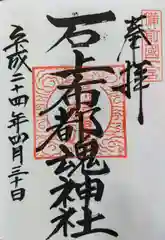 備前國一宮
奉拝
石上布都魂神社
平成二十四年四月三十日